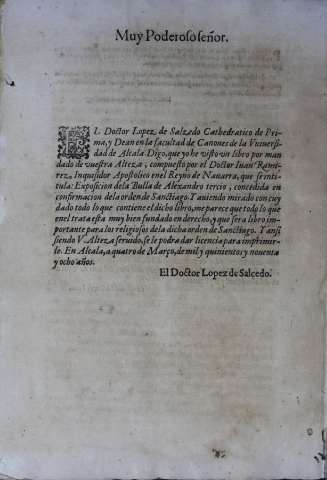 Muy Poderoso señor.
EL Doctor Lopez de Salzedo Cathedratico de Pri-
ma, y Dean en la facultad de Canones de la Vniuersi-
dad de Alcala. Digo, que yo he visto vn libro por man
dado de vuestra Alteza, compuesto por el Doctor Iuan Remi
rez, Inquisidor Apostolico en el Reyno de Nauarra, que se inti-
tula: Exposicion dela Bulla de Alexandro tercio, concedida en
confirmacion dela orden de Sanctiago. Y auiendo mirado con cuy
dado todo lo que contiene el dicho libro, me parece que todo lo que
en el trata esta muy bien fundado en derecho, y que sera libro im-
portante para los religiosos dela dicha orden de Sanctiago. Y ansi
siendo V. Alteza seruido, se le podra dar licencia para imprimir-
lo. En Alcala, a quatro de Março, de mil y quinientos y nouenta
y ocho años.
El Doctor Lopez de Salcedo.